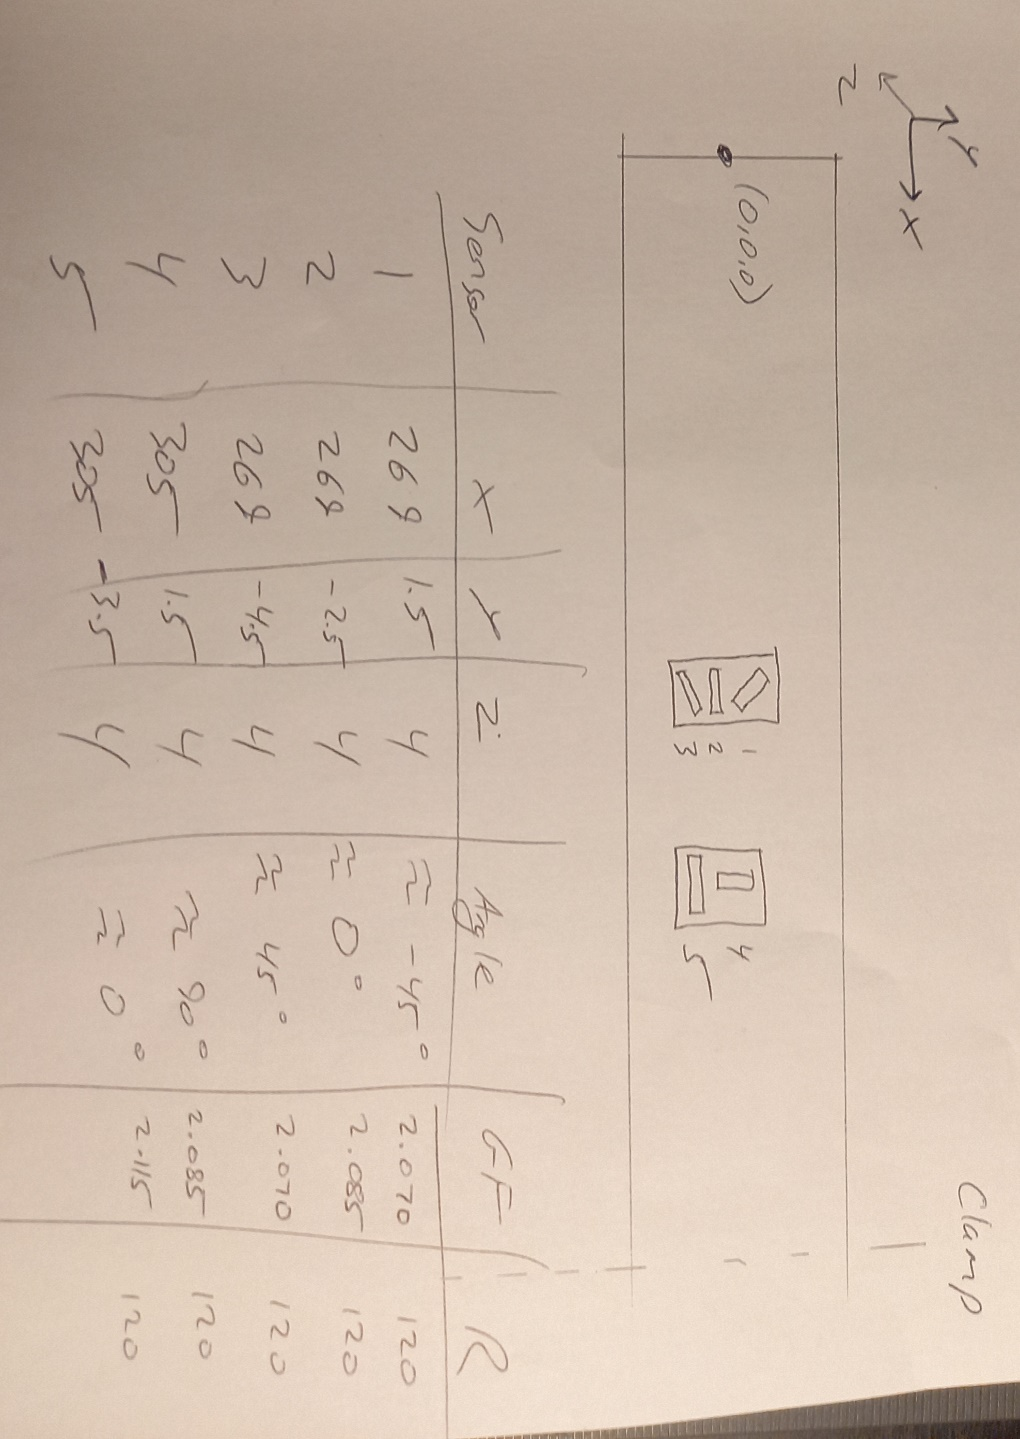 Clamp
y
x
z
(0,0,0)
1
2
3
4
5
Sensor x y z Angle GF R
1 269 1.5 4 ≈ -45° 2.070 120
2 269 -2.5 4 ≈ 0° 2.085 120
3 269 -4.5 4 ≈ 45° 2.070 120
4 305 1.5 4 ≈ 90° 2.085 120
5 305 -3.5 4 ≈ 0° 2.115 120